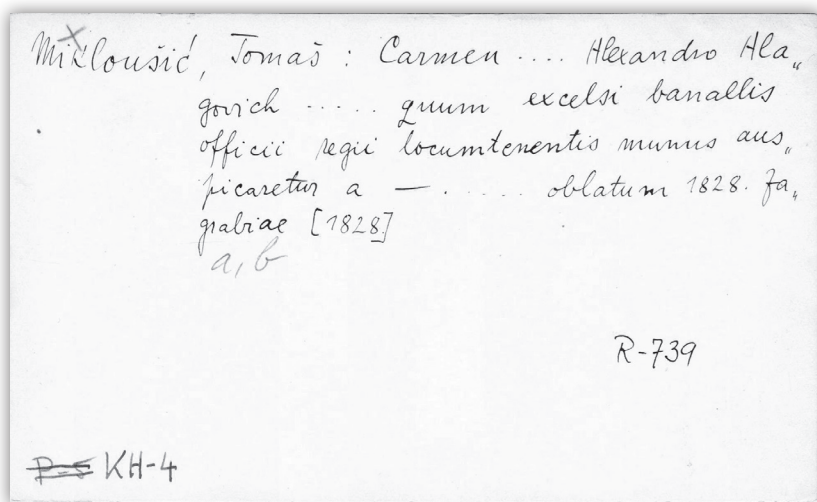 Mikloušić, Tomaš : Carmen .... Alexandro Ala„
govich ..... quum excelsi banallis
officii regii locumtenentis munus aus„
picaretur a — ..... oblatum 1828. Za„
grabiae [1828]
a, b
R-739
P-5 KH-4